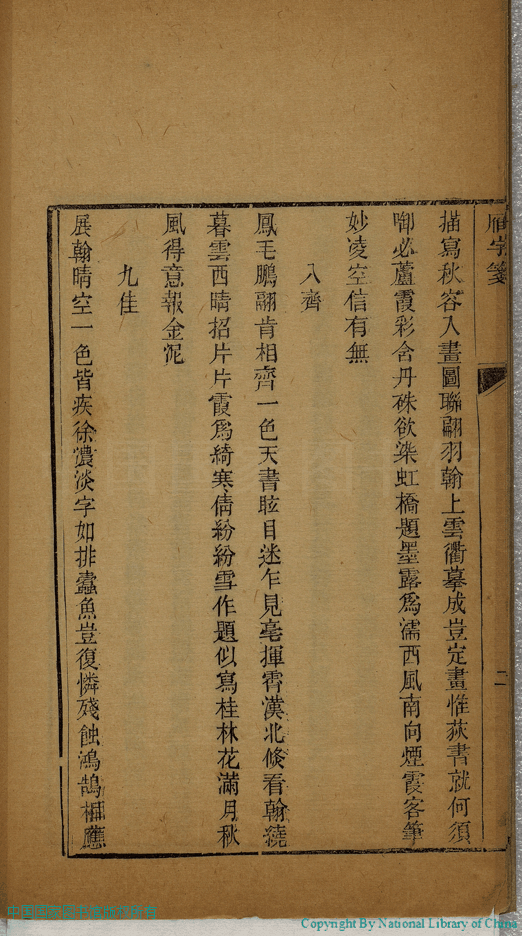 雁字箋
二
描寫秋容入畫圖聯翩羽翰上雲衢摹成豈定畫惟荻書就何須
啣必蘆霞彩舍丹硃欲染虹橋題墨露爲濡西風南向煙霞客筆
妙凌空信有無
八齊
鳳毛鵬翮肯相齊一色天書眩目迷乍見毫揮霄漢北倏看翰繞
暮雲西晴招片片霞爲綺寒倩紛紛雪作題似寫桂林花滿月秋
風得意報金泥
九佳
展翰晴空一色皆疾徐濃淡字如排蠹魚豈復憐殘蝕鴻鵠相應
Copyright By National Library of China